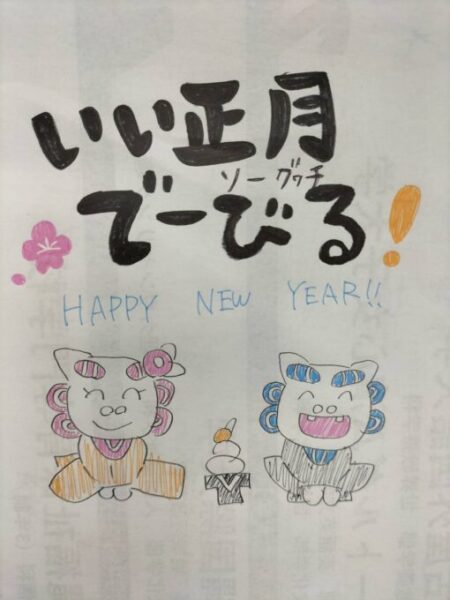 いい正月
ソーグヮチ
でーびる!
HAPPY NEW YEAR!!